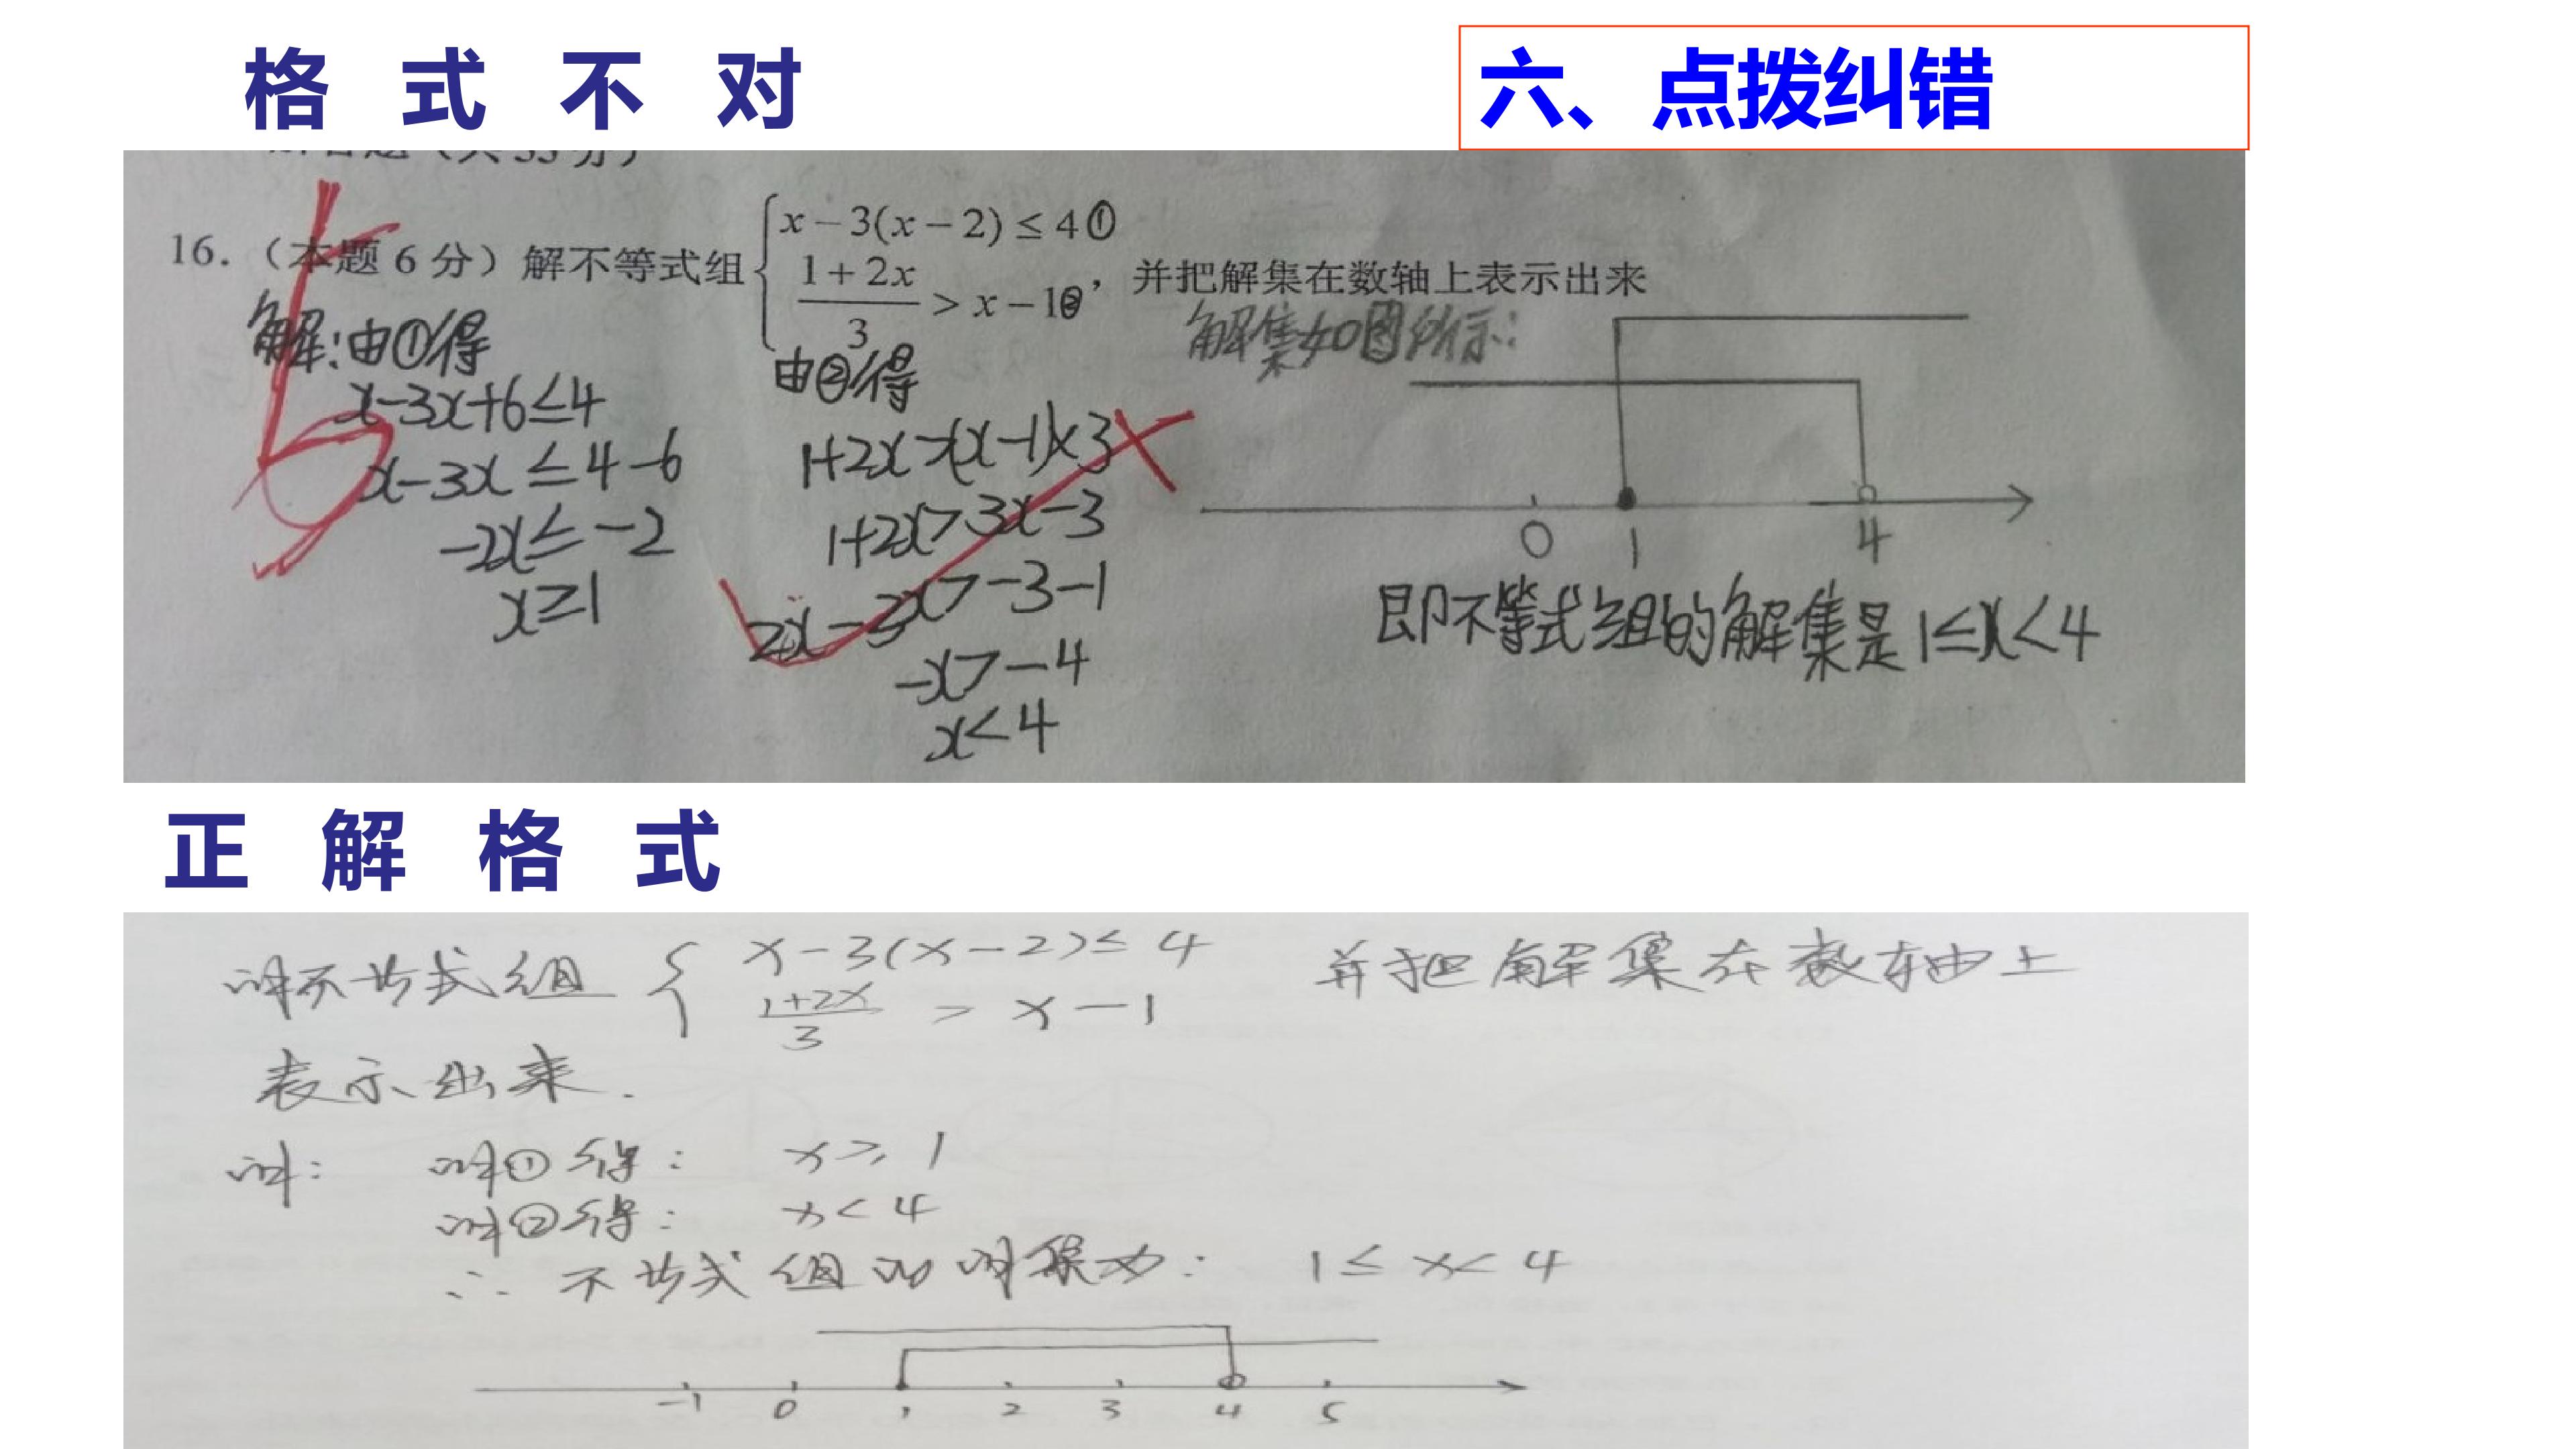 格式不对
六、点拨纠错
16.（本题6分）解不等式组 { x-3(x-2)≤4① , 并把解集在数轴上表示出来
(1+2x)/3 > x-1②
解:由①得
x-3x+6≤4
x-3x≤4-6
-2x≤-2
x≥1
由②得
1+2x>(x-1)×3
1+2x>3x-3
2x-3x>-3-1
-x>-4
x<4
解集如图所示:
0 1 4
即不等式组的解集是1≤x<4
正解格式
解不等式组 { x-3(x-2)≤4 并把解集在数轴上
(1+2x)/3 > x-1
表示出来.
解: 解①得: x≥1
解②得: x<4
∴不等式组的解集为: 1≤x<4
-1 0 1 2 3 4 5